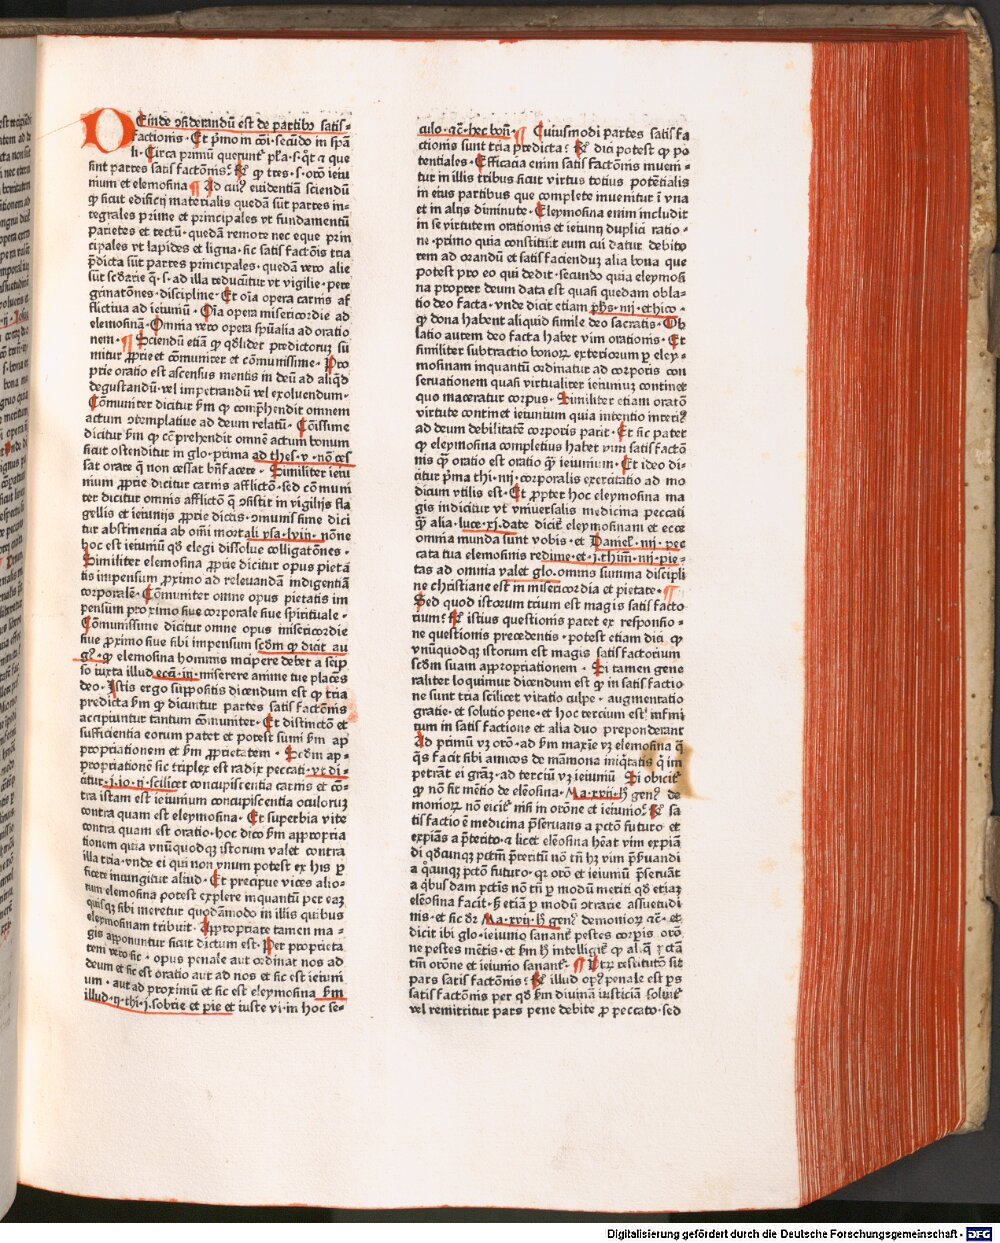 DEinde ↄſiderandū eſt de partibꝰ ſatiſ⸗
factionis · Et p̄mo in cōi · ſecūdo in ſpāa
li · Circa primū querunt᷑ · pl̄a · ſ · qt̄ ⁊ que
ſint partes ſatiſfactōis? R̄ꝰ ꝙ tres · ſ · orō ieiu
nium et elemoſina ¶ Ad cuiꝰ euidentiā ſciendū
ꝙ ſicut edificij materialis quedā ſūt partes in⸗
tegrales prime et principales vt fundamentū
parietes et tectū · quedā remote nec eque prin
cipales vt lapides et ligna · ſic ſatiſfactōis tria
p̄dicta ſūt partes principales · quedā vero alie
ſūt ſcd̄arie q̄ · ſ · ad illa reducūtur vt vigilie · pere
grinatōnes · diſcipline · Et oīa opera carnis af
flictiua ad ieiuniū · Oīa opera miſericordie ad
elemoſinā · Omnia vero opera ſpūalia ad oratio
nem · ¶ Sciendū etiā ꝙ qd̄libet predictorꝝ ſu
mitur ꝓprie et cōmuniter et cōmuniſſime · Pro
prie oratio eſt aſcenſus mentis in deū ad aliqd̄
deguſtandū · vel impetrandū vel exoluendum ·
Cōmuniter dicitur ẜm ꝙ comp̄hendit omnem
actum ↄtemplatiue ad deum relatū · Cōiſſime
dicitur ẜm ꝙ cōprehendit omnē actum bonum
ſicut oſtenditur in glo · prima ad theſ · v · nō ceſ
ſat orare q̄ non ceſſat bn̄facere · Similiter ieiu
nium ꝓprie dicitur carnis afflictō · ſed cōmuni
ter dicitur omnis afflictō q̄ ↄſiſtit in vigilijs fla
gellis et ieiunijs ꝓprie dictis · ↄmuniſſime dici
tur abſtinentia ab om̄i mortali pſa · lviij · nōne
hoc eſt ieiuniū qd̄ elegi diſſolue colligatōnes ·
Similiter elemoſina ꝓprie dicitur opus pieta
tis impenſum ꝓximo ad releuandā indigentiā
corporalē · Cōmuniter omne opus pietatis im
penſum proximo ſiue corporale ſiue ſpirituale ·
Cōmuniſſime dicitur omne opus miſericordie
ſiue ꝓximo ſiue ſibi impenſum ſcd̄m ꝙ dicit au
gꝰ · ꝙ elemoſina hominis incipere debet a ſeip
ſo iuxta illud ecci · iij · miſerere anime tue placēs
deo · Iſtis ergo ſuppoſitis dicendum eſt ꝙ tria
predicta ẜm ꝙ dicuntur partes ſatiſfactōnis
accipiuntur tantum cōmuniter · Et diſtinctō et
ſufficientia eorum patet et poteſt ſumi ẜm ap
propriationem et ẜm ꝓprietatem · Scd̄m ap⸗
propriationē ſic triplex eſt radix peccati · vt di⸗
citur · j · io · ij · ſcilicet concupiſcentia carnis et cō⸗
tra iſtam eſt ieiunium concupiſcentia oculorꝝ
contra quam eſt eleymoſina · Et ſuperbia vite
contra quam eſt oratio · hoc dico ẜm appropria
tionem quia vnūquodqꝫ iſtorum valet contra
illa tria · vnde ei qui non vnum poteſt ex his ꝑ
ficere iniungitur aliud · Et precipue vices alio⸗
rum elemoſina poteſt explere inquantū per eaꝫ
quiſqꝫ ſibi meretur quodāmodo in illis quibus
eleymoſinam tribuit · Appropriate tamen ma⸗
gis apponuntur ſicut dictum eſt · Per proprieta
tem vero ſic · opus penale aut ordinat nos ad
deum et ſic eſt oratio aut ad nos et ſic eſt ieiuni
um · aut ad proximū et ſic eſt eleymoſina ẜm
illud · ij · thi · j · ſobrie et pie et iuſte viui in hoc ſe⸗
culo · ⁊c̄ · hec bon̄ · ¶ Cuiuſmodi partes ſatiſfa
ctionis ſunt tria predicta? R̄ꝰ dici poteſt ꝙ po
tentiales · Efficacia enim ſatiſfactōnis inueni⸗
tur in illis tribus ſicut virtus totius potētialis
in eius partibus que complete inuenitur ī vna
et in alijs diminute · Eleymoſina enim includit
in ſe virtutem orationis et ieiunij duplici ratio⸗
ne · primo quia conſtituit eum cui datur debito
rem ad orandū et ſatiſfaciendū alia bona que
poteſt pro eo qui dedit · ſecundo quia eleymoſi
na propter deum data eſt quaſi quedam obla⸗
tio deo facta · vnde dicit etiam ph̄s · iiij · ethico ·
ꝙ dona habent aliquid ſimile deo ſacratis · Ob
latio autem deo facta habet vim orationis · Et
ſimiliter ſubtractio bonorꝝ exteriorum ꝑ eley⸗
moſinam inquantū ordinatur ad corporis con
ſeruationem quaſi virtualiter ieiuniuꝫ continet
quo maceratur corpus · Similiter etiam oratō
virtute continet ieiunium quia intentio interiꝰ
ad deum debilitatē corporis parit · Et ſic patet
ꝙ eleymoſina completius habet vim ſatiſfactō
nis ꝙ̄ oratio eſt oratio ꝙ̄ ieiunium · Et ideo di⸗
citur p̄ma thi · iiij · corporalis exercitatio ad mo
dicum vtilis eſt · Et ꝓpter hoc eleymoſina ma
gis indicitur vt vniuerſalis medicina peccati
ꝙ̄ alia · luce · xj · date dicit᷑ eleymoſinam et ecce
omnia munda ſunt vobis · et Daniel · iiij · pec
cata tua elemoſinis redime · et · j · thim̄ · iiij · pie⸗
tas ad omnia valet glo · omnis ſumma diſcipli
ne chriſtiane eſt in miſericordia et pietate · ¶
Sed quod iſtorum trium eſt magis ſatiſfacto
rium? R̄ꝰ iſtius queſtionis patet ex reſponſio⸗
ne queſtionis precedentis · poteſt etiam dici ꝙ
vnūquodqꝫ iſtorum eſt magis ſatiſfactorium
ſcd̄m ſuam appropriationem · Si tamen gene
raliter loquimur dicendum eſt ꝙ in ſatiſfactio
ne ſunt tria ſcilicet vitatio culpe · augmentatio
gratie · et ſolutio pene · et hoc tercium eſt infini
tum in ſatiſfactione et alia duo preponderant
Ad primū vꝫ orō · ad ẜm maxīe vꝫ elemoſina q̄
q̄s facit ſibi amicos de māmona iniq̄tatis q̄ im
petrāt ei graꝫ · ad terciū vꝫ ieiuniū Si obicit᷑
ꝙ nō fit mētio de eleōſina · Ma · xvij · hͦ genꝰ de
moniorꝝ nō eicit᷑ niſi in orōne et ieiunio? R̄ꝰ ſa
tiſfactio ē medicina p̄ſeruans a pctō futuro et
expiās a p̄terito · ⁊ licet eleōſina hēat vim expiā
di qd̄cunqꝫ pctm̄ p̄teritū nō tn̄ hꝫ vim p̄ſeruandi
a q̊cunqꝫ pctō futuro · qꝫ orō et ieiuniū p̄ſeruāt
a q̄buſdam pctīs nō tn̄ ꝑ modū meriti qd̄ etiaꝫ
eleōſina facit · ſꝫ etiā ꝑ modū ↄtrarie aſſuetudi
nis · et ſic dꝛ Ma · xvij · hͦ genꝰ demoniorꝝ ⁊c̄ · et
dicit ibi glo · ieiunio ſanant᷑ peſtes corpis orō
ne peſtes mētis · et ẜm hͦ intelligit᷑ ꝙ aliq̄
tm̄ orōne et ieiunio ſanant᷑ · ¶ Vtrꝝ reſtitutō ſit
pars ſatiſfactōis? R̄ꝰ illud opꝰ penale eſt ps
ſatiſfactōnis per qd̄ ẜm diuinā iuſticiā ſoluit᷑
vel remittitur pars pene debite ꝓ peccato · ſed
Digitalisierung gefördert durch die Deutsche Forschungsgemeinschaft · DFG